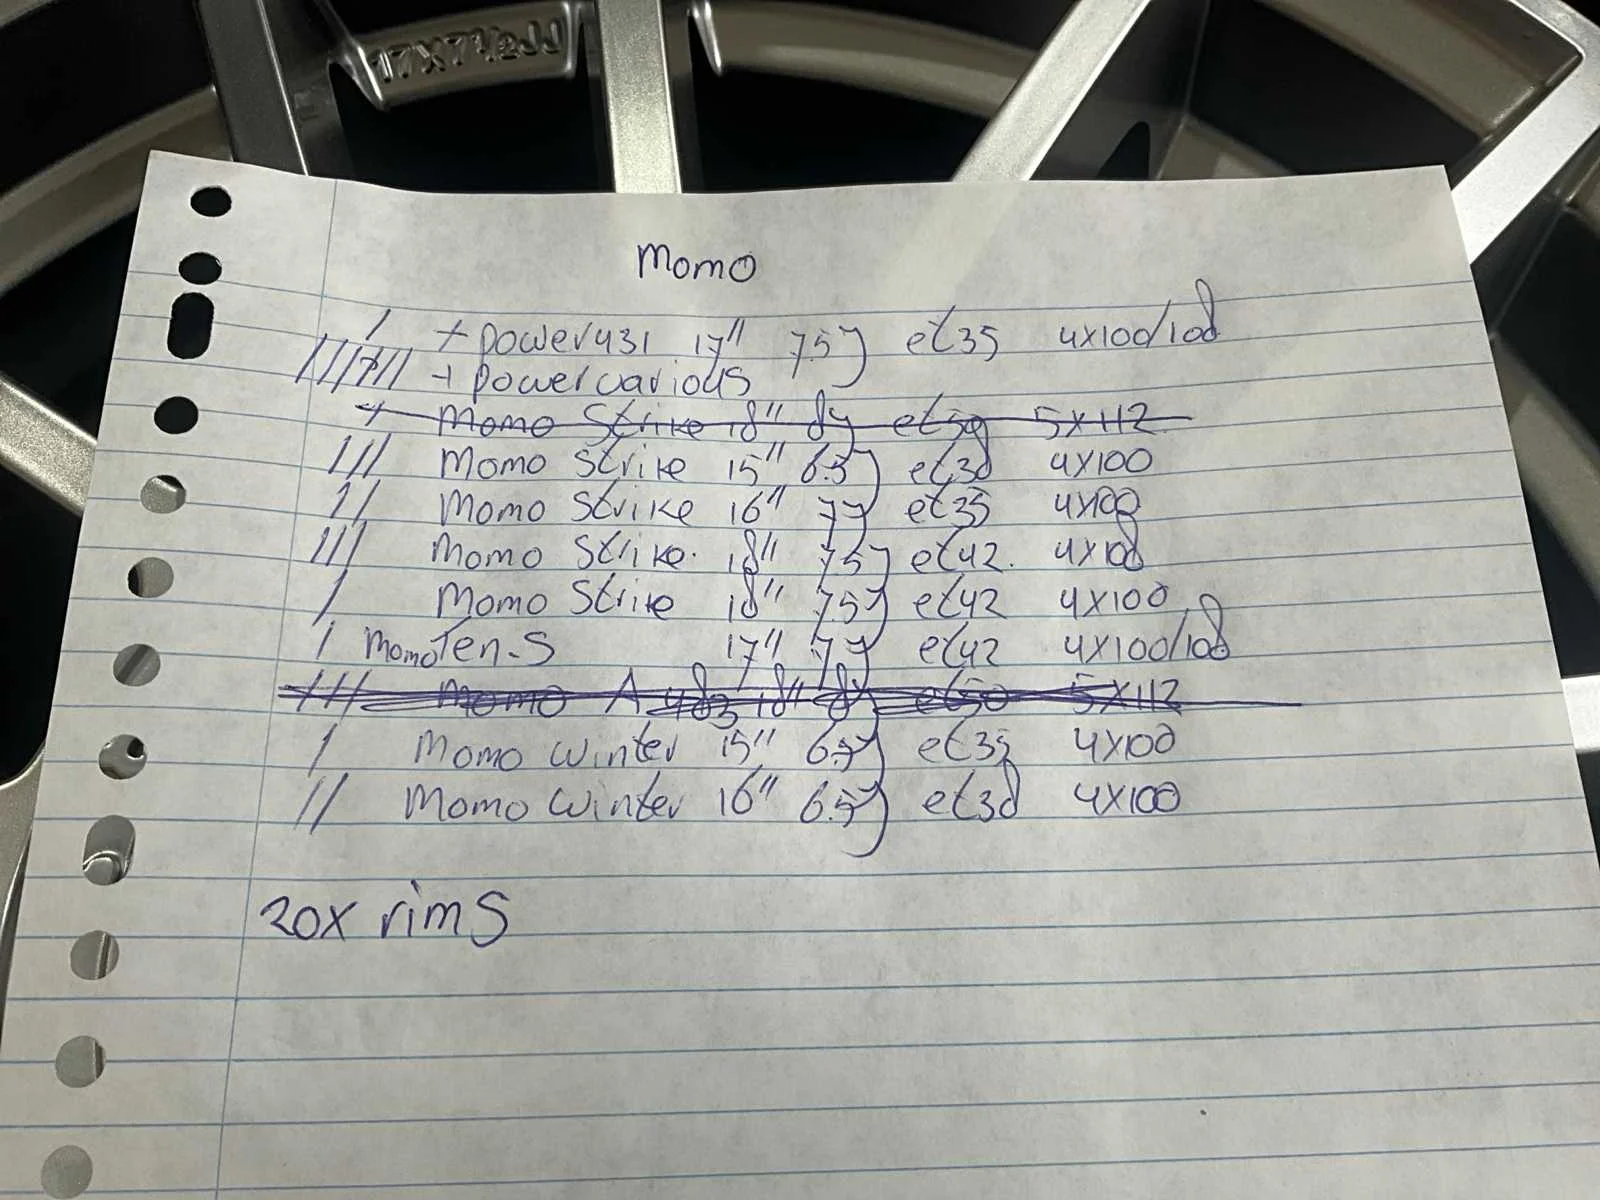 17X7½JJ
Momo
/ + power431 17" 7.5J et35 4x100/108
///////  + power various
/ Momo Strike 18" 8J et50 5x112
/// Momo Strike 15" 6.5J et38 4x100
// Momo Strike 16" 7J et35 4x100
/// Momo Strike. 18" 7.5J et42. 4x108
/ Momo Strike 18" 7.5J et42 4x100
/ Momo Ten-S 17" 7J et42 4x100/108
/// Momo A 483 18" 8J et50 5x112
/ Momo winter 15" 6.5J et35 4x100
// Momo winter 16" 6.5J et38 4x100
20x rims